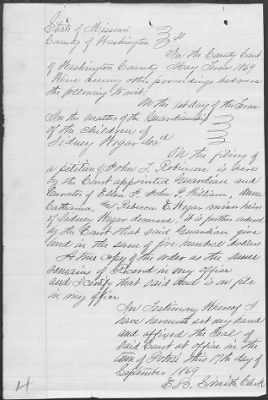 State of Missouri
County of Washington } ss
In the County Court
of Washington County May Term 1869
Where among other proceedings had were
the following to wit:
On the 1st day of the Term
In the matter of the Guardianship
of the children of
Sidney Hogan decd
On the filing of
a petition of John T. Robinson is here
by the Court appointed Guardian and
Curator of John G William,
Catharine, Rebecca E Hogan minor heirs
of Sidney Hogan deceased. it is further ordered
by the Court that said Guardian give
bond in the sum of five hundred dollars
A true copy of the order as the same
remains of Record in my office
and I certify that said bond is on file
in my office
In Testimony Whereof I
have hereunto set my hand
and affixed the Seal of
said Court at office in the
City of Potosi this 17th day of
September 1869
Smith Clerk